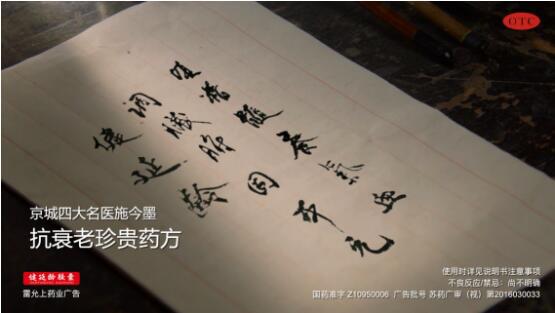 OTC
填精髓 养气血
调脏腑 固本元
健延龄
京城四大名医施今墨
抗衰老珍贵药方
健延龄胶囊
雷允上药业广告
使用时详见说明书注意事项
不良反应/禁忌：尚不明确
国药准字 Z10950006 广告批号 苏药广审（视）第2016030033